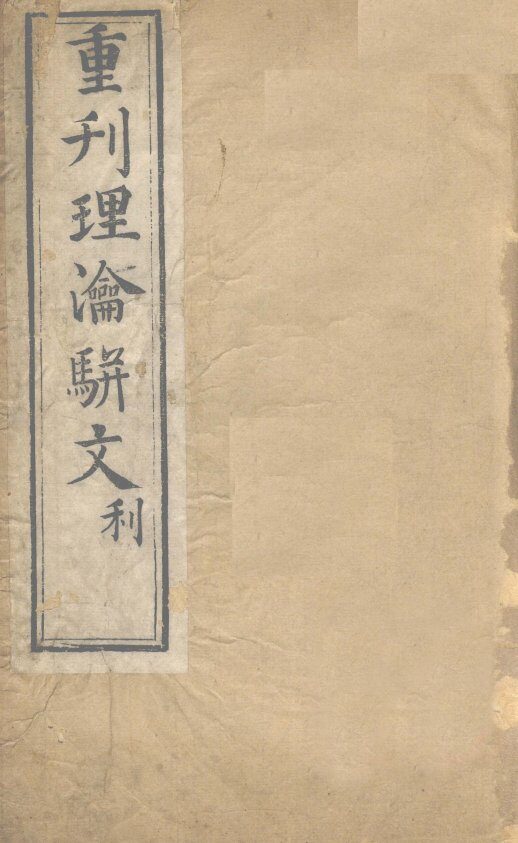 重刋理瀹駢文利